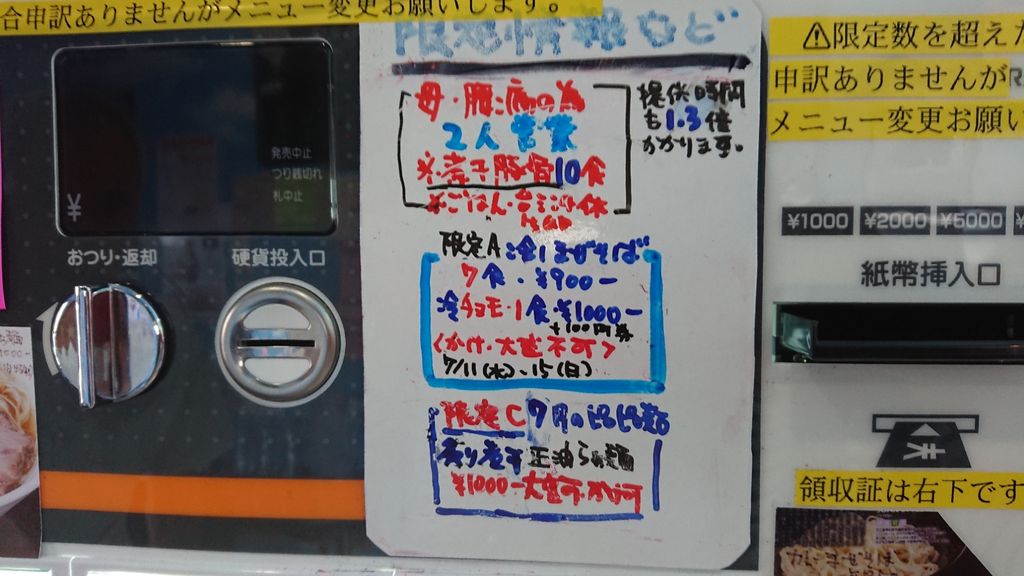 合申訳ありませんがメニュー変更お願いします。
限定情報など
母・腰痛の為
2人営業
※辛子豚骨10食
※ごはん・
提供時間
も1.3倍
かかります。
限定A:冷しまぜそば
7食・¥900-
冷チョモ・1食・¥1000-
+100円券
<かけ・大盛不可>
7/11(水)・15(日)
限定C 7月の
煮干正油らぁ麺
¥1000-大盛可・
発売中止
つり銭切れ
札中止
¥
おつり・返却
硬貨投入口
⚠限定数を超えた
申訳ありませんが
メニュー変更お願い
¥1000 ¥2000 ¥5000
紙幣挿入口
¥
領収証は右下です